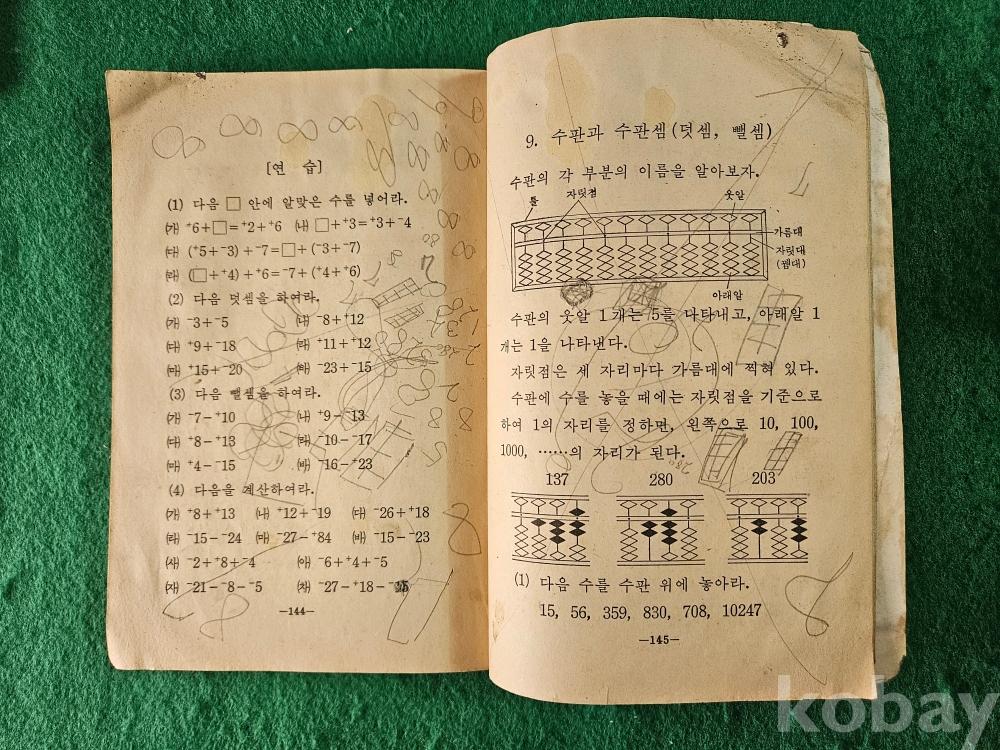 [연 습]
(1) 다음 □ 안에 알맞은 수를 넣어라.
㈎ ⁺6+□=⁺2+⁺6 ㈏ □+⁺3=⁺3+⁻4
㈐ (⁺5+⁻3)+⁻7=□+(⁻3+⁻7)
㈑ (□+⁺4)+⁺6=⁻7+(⁺4+⁺6)
(2) 다음 덧셈을 하여라.
㈎ ⁻3+⁻5 ㈏ ⁻8+⁺12
㈐ ⁺9+⁻18 ㈑ ⁺11+⁺12
㈒ ⁺15+⁻20 ㈓ ⁻23+⁻15
(3) 다음 뺄셈을 하여라.
㈎ ⁻7−⁺10 ㈏ ⁺9−⁻13
㈐ ⁺8−⁺13 ㈑ ⁻10−⁻17
㈒ ⁺4−⁻15 ㈓ ⁻16−⁺23
(4) 다음을 계산하여라.
㈎ ⁺8+⁺13 ㈏ ⁺12+⁻19 ㈐ ⁻26+⁺18
㈑ ⁻15−⁻24 ㈒ ⁻27−⁺84 ㈓ ⁻15−⁻23
㈔ ⁻2+⁺8+⁻4 ㈕ ⁻6+⁺4+⁻5
㈖ ⁻21−⁻8−⁻5 ㈗ ⁻27−⁺18−
—144—
9. 수판과 수판셈(덧셈, 뺄셈)
수판의 각 부분의 이름을 알아보자.
틀 자릿점 웃알
가름대
자릿대
(뀀대)
아래알
수판의 웃알 1개는 5를 나타내고, 아래알 1
개는 1을 나타낸다.
자릿점은 세 자리마다 가름대에 찍혀 있다.
수판에 수를 놓을 때에는 자릿점을 기준으로
하여 1의 자리를 정하면, 왼쪽으로 10, 100,
1000, ……의 자리가 된다.
137 280 203
(1) 다음 수를 수판 위에 놓아라.
15, 56, 359, 830, 708, 10247
—145—
kobay